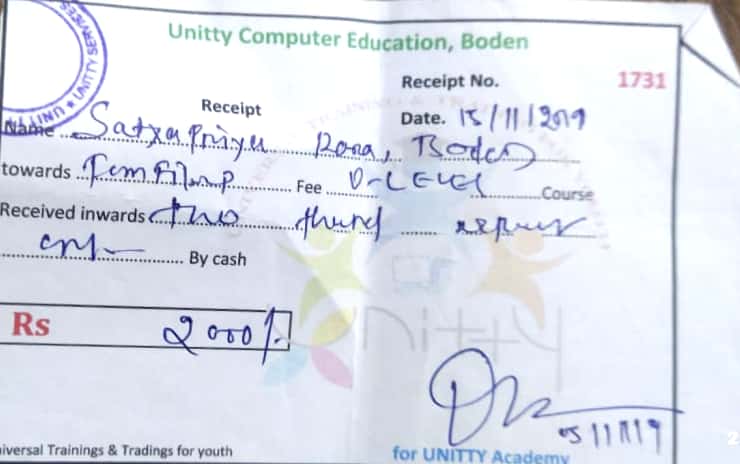 Unitty Computer Education, Boden
UNITTY SERVICES
Receipt No. 1731
Receipt
Date. 15/11/2019
Name Satyapriya Rona, Boden
towards Fee O-LEVEL Course
Received inwards two
only By cash
Rs 2000/-
unitty
iversal Trainings & Tradings for youth
for UNITTY Academy